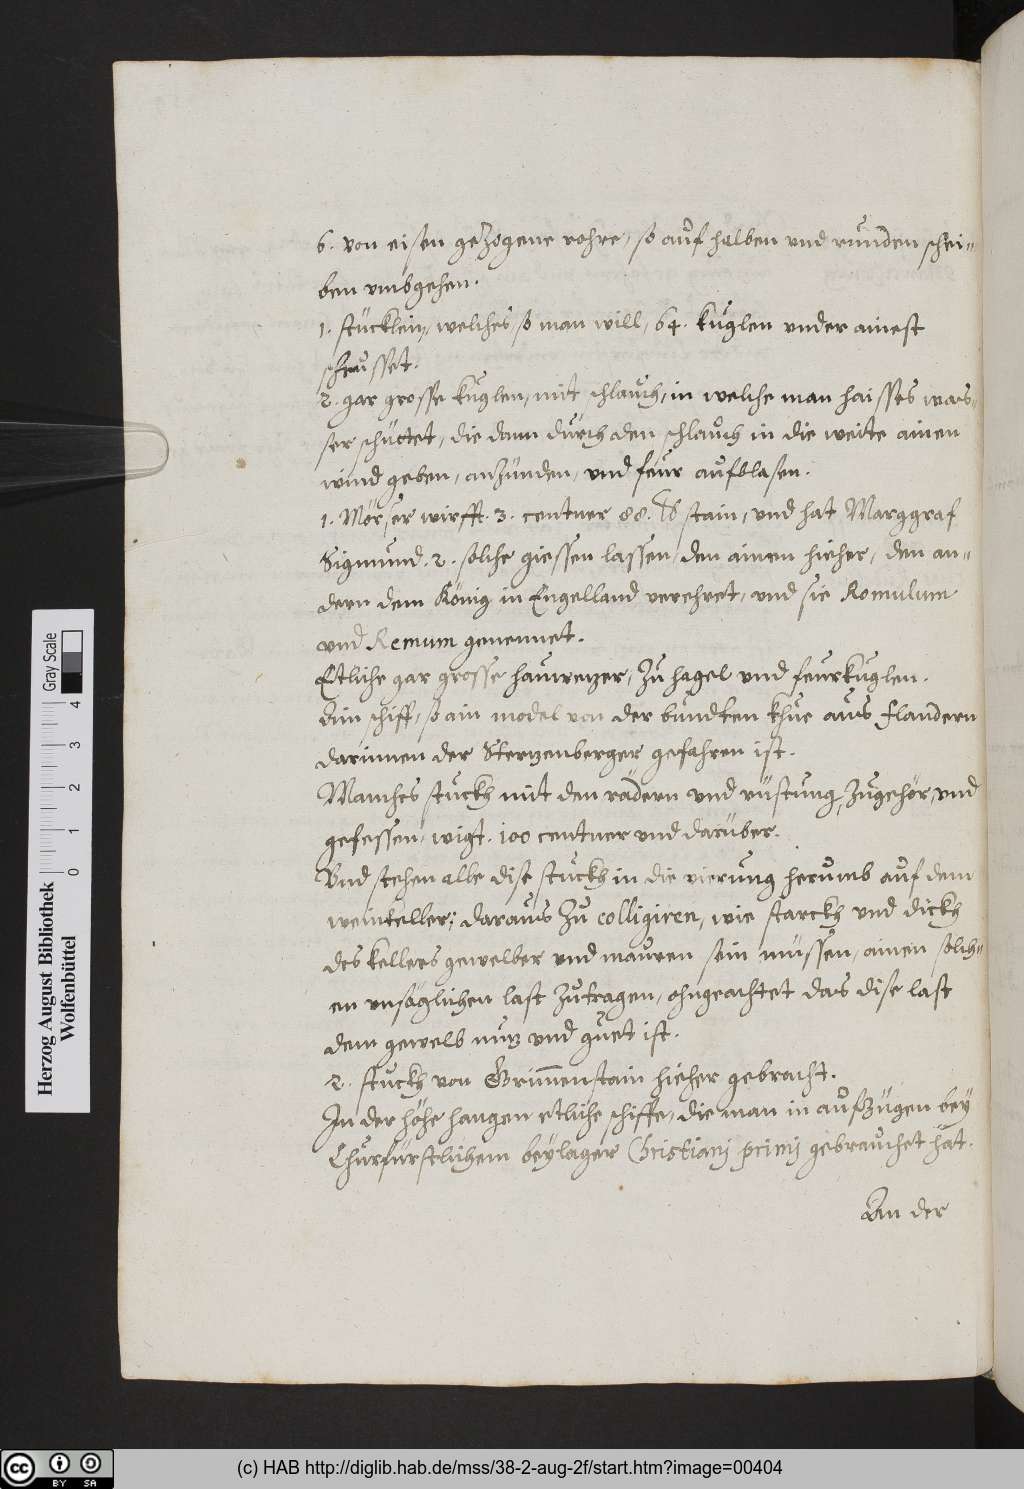 6. von eisen gezogene rohre, so auf halben und runden schei=
ben umbgehen.
1. stücklein, welches so man will, 64. kuglen under ainest
scheusset.
2. gar grosse kuglen, mit schlauch, in welche man haisses was=
ser schüttet, die dann durch den schlauch in die weite ainen
wind geben, anzünden, und feur aufblasen.
1. Mörser wirfft. 3. centner 88. ℔ stain, und hat Marggraf
Sigmund. 2. solche giessen lassen, den ainen hieher, den an=
dern dem König in Engelland verehret, und sie Romulum
und Remum genennet.
Etliche gar grosse hauwenzer, zu hagel und feurkuglen.
Ain schiff, so ain model von der bundten khue aus flandern
darinnen der Sternzenberger gefahren ist.
Manches stuckh mit den rädern und rüstung, zugehör, und
gefessen, wigt. 100 centner und darüber.
Und stehen alle dise stuckh in die vierung herumb auf dem
weinkeller; daraus zu colligiren, wie starckh und dickh
des kellers gewelber und mauren sein müssen, ainen solch=
en unsäglichen last zutragen, ohngeachtet das dise last
dem gewelb nutz und guet ist.
2. stuckh von Grimmenstain hieher gebracht.
In der höhe hangen etliche schiffe, die man in aufzügen bey
Churfürstlichem beylager Christianj primj gebrauchet hat.
An der
Herzog August Bibliothek
Wolfenbüttel
Gray Scale
0 1 2 3 4
cc BY SA
(c) HAB http://diglib.hab.de/mss/38-2-aug-2f/start.htm?image=00404